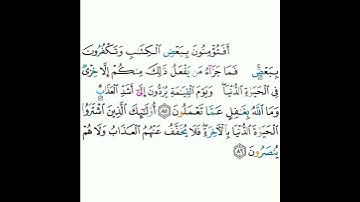 أَفَتُؤْمِنُونَ بِبَعْضِ الْكِتَٰبِ وَتَكْفُرُونَ
بِبَعْضٍ ۚ فَمَا جَزَآءُ مَن يَفْعَلُ ذَٰلِكَ مِنكُمْ إِلَّا خِزْىٌ
فِى الْحَيَوٰةِ الدُّنْيَا ۖ وَيَوْمَ الْقِيَٰمَةِ يُرَدُّونَ إِلَىٰٓ أَشَدِّ الْعَذَابِ ۗ
وَمَا اللَّهُ بِغَٰفِلٍ عَمَّا تَعْمَلُونَ ٨٥ أُو۟لَٰٓئِكَ الَّذِينَ اشْتَرَوُا۟
الْحَيَوٰةَ الدُّنْيَا بِالْءَاخِرَةِ ۖ فَلَا يُخَفَّفُ عَنْهُمُ الْعَذَابُ وَلَا هُمْ
يُنصَرُونَ ٨٦